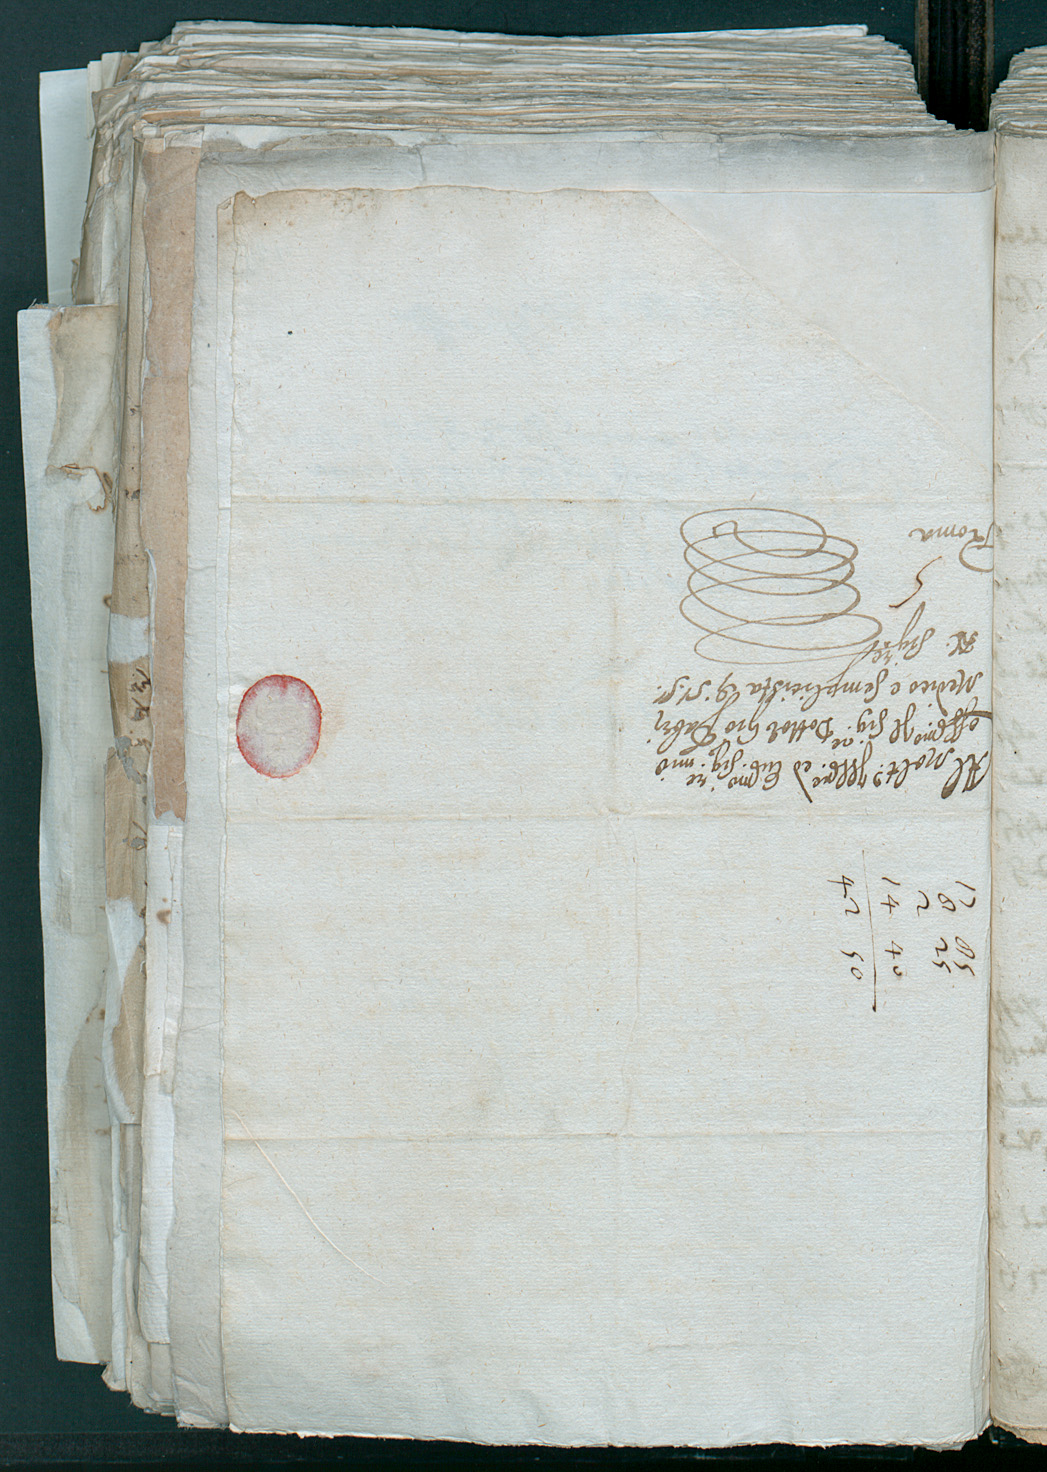 Al Molt. Ill.re ed Ecc.mo Sig.re mio
oss.mo Il Sig.r Dottor Gio Fabri
Medico e semplicista di N. S.
Al. Sig.re
Roma
17 85
8 25
2
14 40
42 50